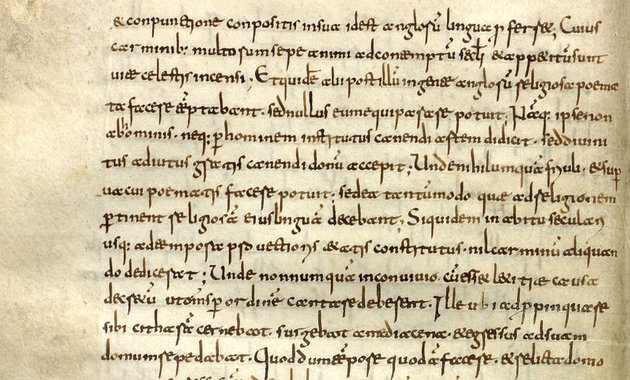 & conpunctione conpositis insua idest anglorū lingua pferret; Cuius
carminib; multorum sepe animi adcontemptū sęcli & appetitū sunt
uiae celestis incensi . Et quidē alii post illū ingente anglorū religiosa poema
ta facere tēptabant . sed nullus eum equiparare potuit; Naq; ipse non
ab hominis . neq; p hominem institutus canendi artem didicit . sed diuini
tus adiutus gratis canendi donū accepit; Unde nihil umquā friuoli . & sup
uacui poematis facere potuit . sed ea tantūmodo quae ad religionem
ptinent religiosā eius linguā decebant; Siquidem in abitu seculari
usq; ad tempora prouectioris aetatis constitutus . nil carminū aliquan
do dedicerat; Unde nonnumquā inconuiuio . cū ess& letitiae causa
decretū ut om̄s p ordinē cantare deberent . Ille ubi adppinquare
sibi citharā cernebat . surgebat amedia cena . & egressus adsuam
domum repedabat . Quod dum tēpore quodā facere . & relicta domo